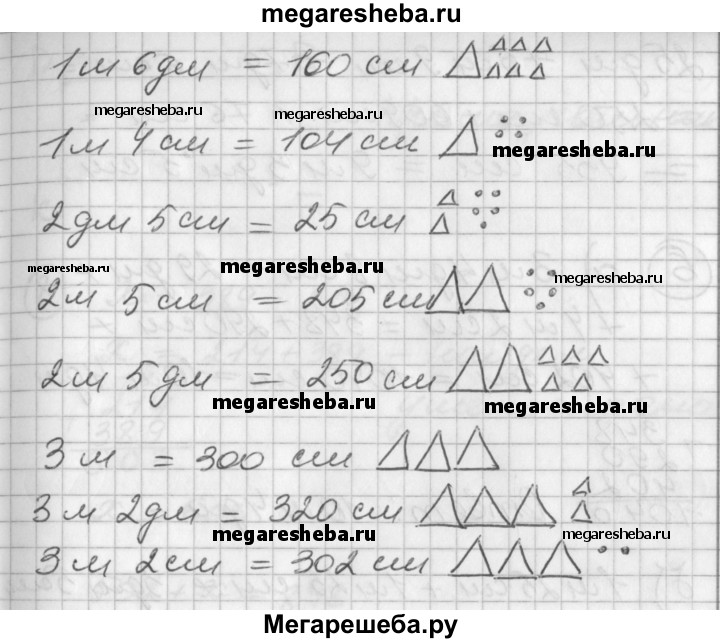 megaresheba.ru
1м 6дм = 160 см
megaresheba.ru megaresheba.ru
1м 4см = 104 см
megaresheba.ru
2дм 5см = 25 см
megaresheba.ru megaresheba.ru
megaresheba.ru
2м 5см = 205 см
2м 5дм = 250 см
megaresheba.ru megaresheba.ru
3м = 300 см
3м 2дм = 320 см
megaresheba.ru megaresheba.ru
3м 2см = 302 см
Мегарешеба.ру